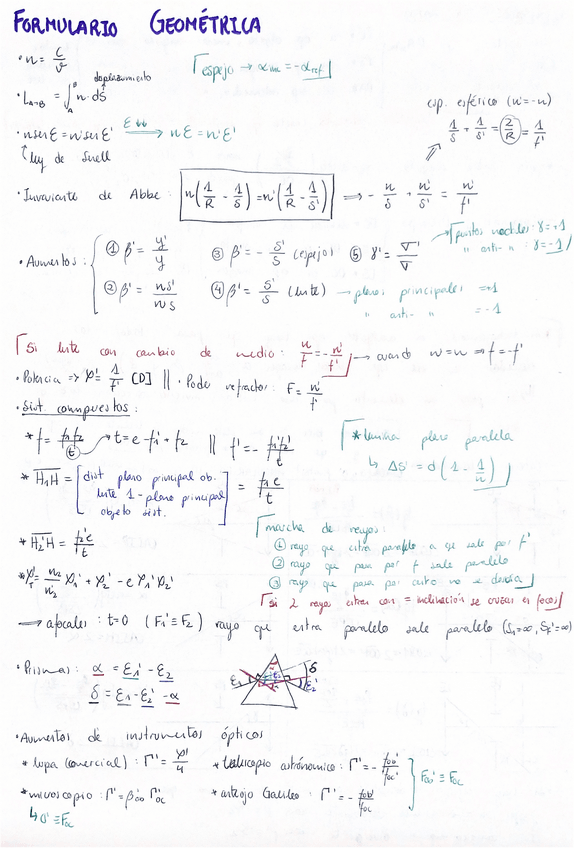 FORMULARIO GEOMÉTRICA
· n = c/v
⌈espejo → α inc = -α ref⌋
desplazamiento
· L A→B = ∫_A^B n · ds
· n sen ε = n' sen ε' ⟹ n ε = n' ε'
↑ ley de Snell
esp. esférico (n' = -n)
1/s + 1/s' = 2/R = 1/f'
· Invariante de Abbe: n(1/R - 1/s) = n'(1/R - 1/s') ⟹ - n/s + n'/s' = n'/f'
· Aumentos:
① β' = y'/y ③ β' = - s'/s (espejo) ⑤ γ' = σ'/σ
→ ⌈puntos nodales: γ = +1
" anti- " : γ = -1⌋
② β' = ns'/n's ④ β' = s'/s (lente) → planos principales = +1
" anti- " = -1
⌈Si lente con cambio de medio: n/f = - n'/f'⌋ → cuando n' = n ⇒ f = -f'
· Potencia ⇒ φ' = 1/f' [D] || · Poder refractor: F = n'/f'
· Sist. compuestos:
* f = f1 f2/t → t = e - f1' + f2 || f' = - f1' f2'/t
⌈* lámina plano paralela
↳ Δs' = d (1 - 1/n)⌋
* H1H = [dist plano principal ob.
lente 1 - plano principal
objeto sist.] = f1 e/t
* H2'H' = f2' e/t
* φ'T = n2/n2' φ1' + φ2' - e φ1' φ2'
⌈marcha de rayos:
① rayo que entra paralelo a eje sale por f'
② rayo que pasa por f sale paralelo
③ rayo que pasa por centro no se desvía⌋
⌈si 2 rayos entran con = inclinación se cruzan en foco⌋
→ afocales: t = 0 (F1' ≡ F2) rayo que entra paralelo sale paralelo (S1 = ∞, SF' = ∞)
· Prismas: α = ε1' - ε2
δ = ε1 - ε2' - α
ε1 ε2 δ ε2'
· Aumentos de instrumentos ópticos
* lupa (comercial): Γ' = φ'/4 * telescopio astronómico: Γ' = - f'ob/f'oc
* microscopio: Γ' = β'ob Γ'oc * anteojo Galileo: Γ' = - f'ob/f'oc
F'ob ≡ Foc
↳ O' ≡ Foc